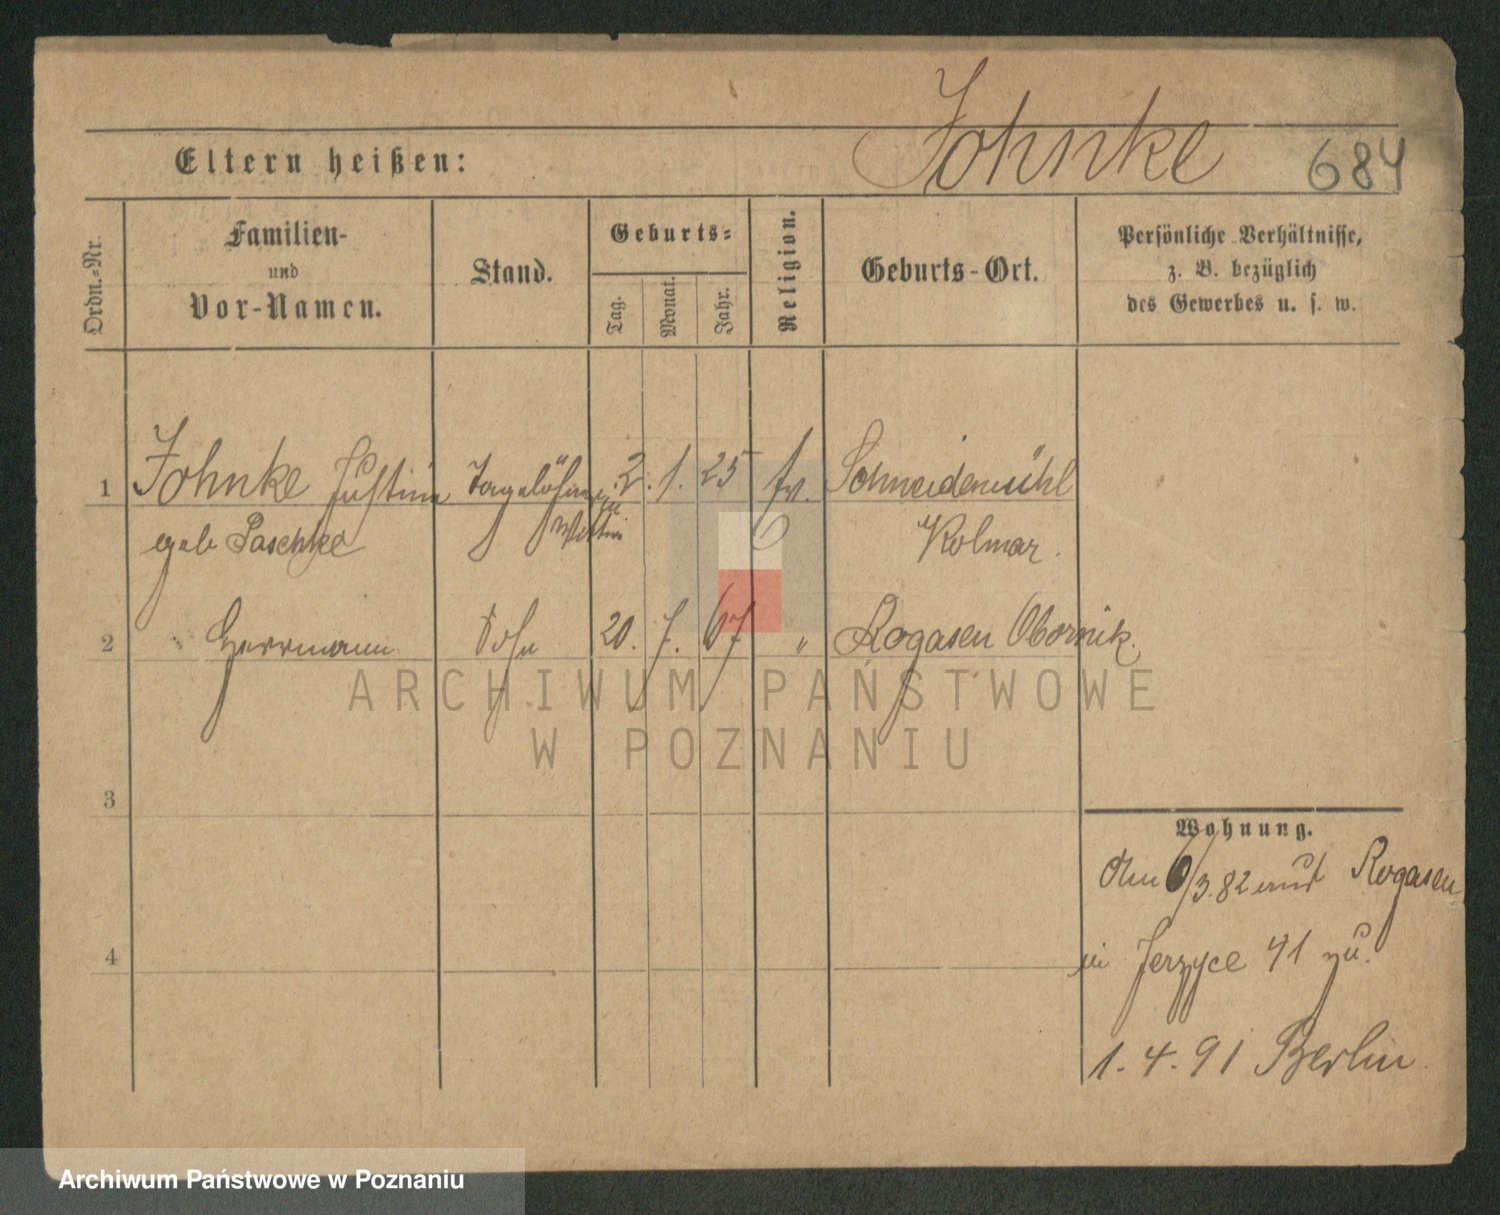 Johnke 684
Eltern heißen:
Ordn.-Nr.
Familien-
und
Vor-Namen.
Stand.
Geburts-
Tag.
Monat.
Jahr.
Religion.
Geburts-Ort.
Persönliche Verhältnisse,
z. B. bezüglich
des Gewerbes u. s. w.
1 Johnke Justine 2. 1. 25 ev. Schneidemühl
geb Paschke Kolmar.
2 Herrmann Sohn 20. 7. 67 " Rogasen Obornik.
3
4
Wohnung.
6/3.82 aus Rogasen
in Jerzyce 41 zu.
1.4.91 Berlin
ARCHIWUM PAŃSTWOWE
W POZNANIU
Archiwum Państwowe w Poznaniu